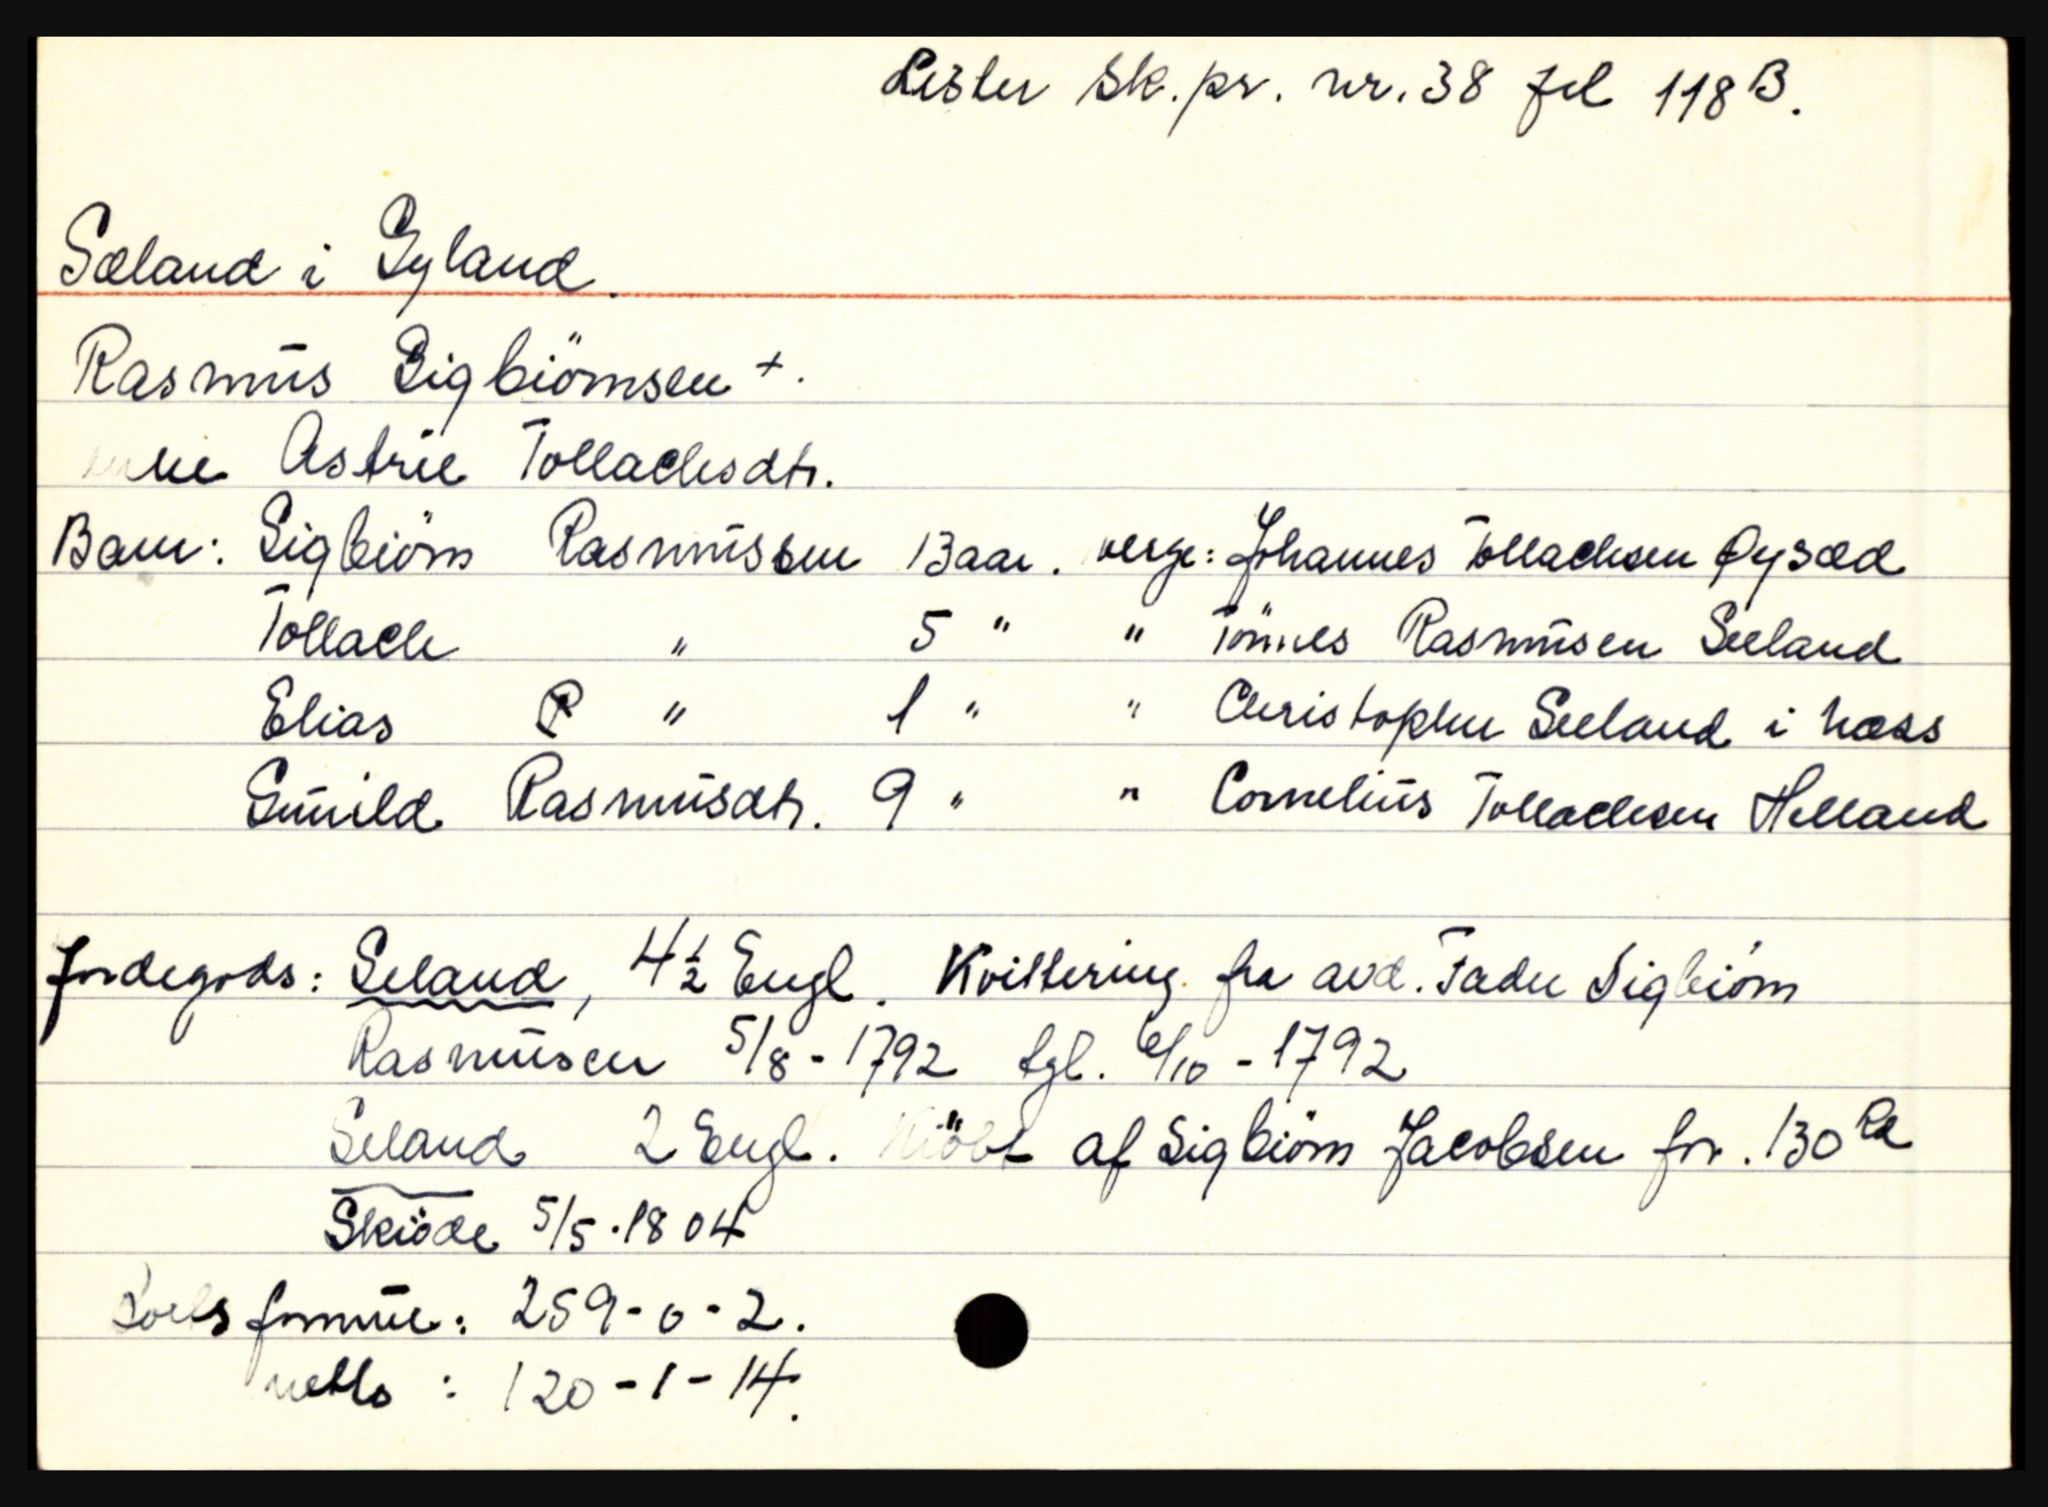 Lister sk.pr. nr. 38 fol 118 B.
Sæland i Gyland.
Rasmus Sigbiörnsen +.
enke Astrie Tollachsdtr.
Barn: Sigbiörn Rasmussen 13 aar. verge: Johannes Tollachsen Øysæd
Tollach " 5 " " Tönnes Rasmusen Seeland
Elias R " 1 " " Christopher Seeland i hæss
Gunild Rasmusdtr. 9 " " Cornelius Tollachsen Helland
Jordegods: Seland, 4½ Engl. Kvittering fra avd. Fader Sigbiörn
Rasmusen 5/8 - 1792 tgl. 6/10 - 1792
Seland 2 Engl. Kiöbt af Sigbiörn Jacobsen for. 130 Rd
Skiöde 5/5 . 1804
Boets formue: 259 - 0 - 2.
netto : 120 - 1 - 14.